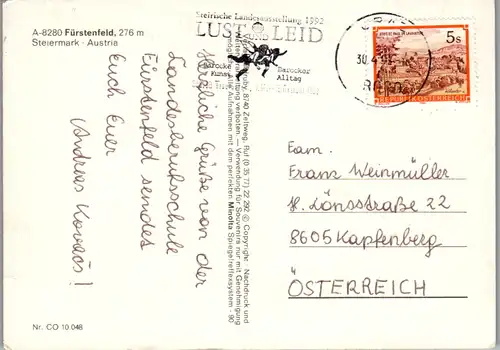 A-8280 Fürstenfeld, 276 m
Steiermark · Austria
Steirische Landesausstellung 1992
LUST UND LEID
Barocke Kunst
Barocker Alltag
30.4.92
5s
REPUBLIK ÖSTERREICH
Herzliche Grüße von der
Landesberufsschule
Fürstenfeld sendet
Euch Euer
Andreas Kovacs!
8740 Zeltweg, Ruf (0 35 77) 22 292 © Copyright · Nachdruck und
verboten — Verwendung für Souvenirs nur mit Genehmigung
Aufnahmen mit dem perfekten Minolta Spiegelreflexsystem - 90
Fam.
Franz Weinmüller
H. Lönsstraße 22
8605 Kapfenberg
ÖSTERREICH
Nr. CO 10.048